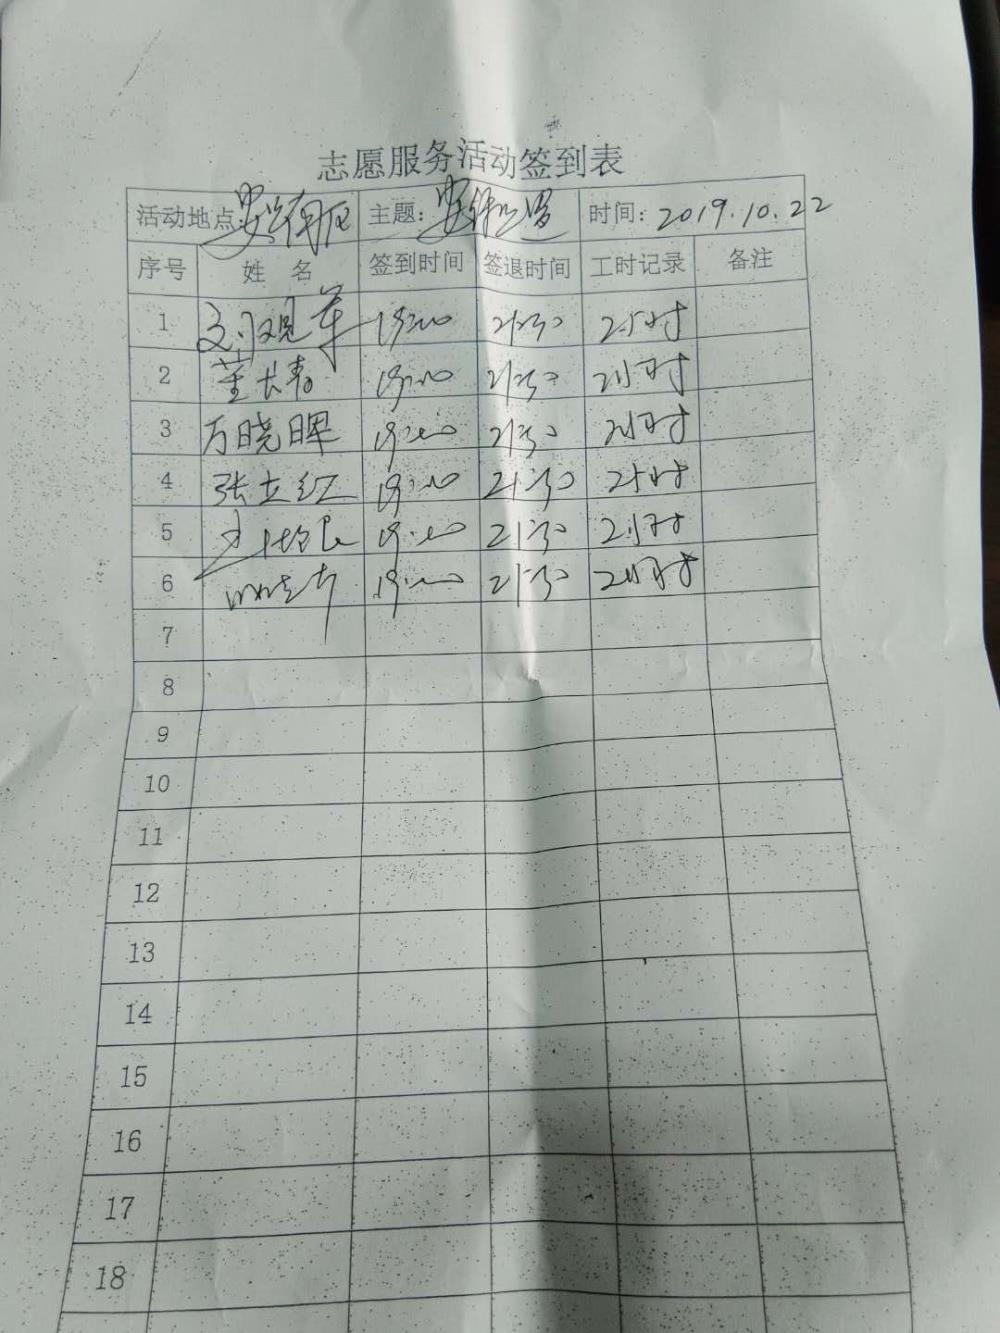 志愿服务活动签到表
活动地点 安 南区 主题: 安 时间: 2019.10.22
序号 姓 名 签到时间 签退时间 工时记录 备注
1 刘观军 19:00 21:30 2.5时
2 董长青 19:00 21:30 2.5时
3 万晓晖 19:00 21:30 2.5时
4 张立红 19:00 21:30 2.5时
5 19:00 21:30 2.5时
6 19:00 21:30 2.5时
7
8
9
10
11
12
13
14
15
16
17
18